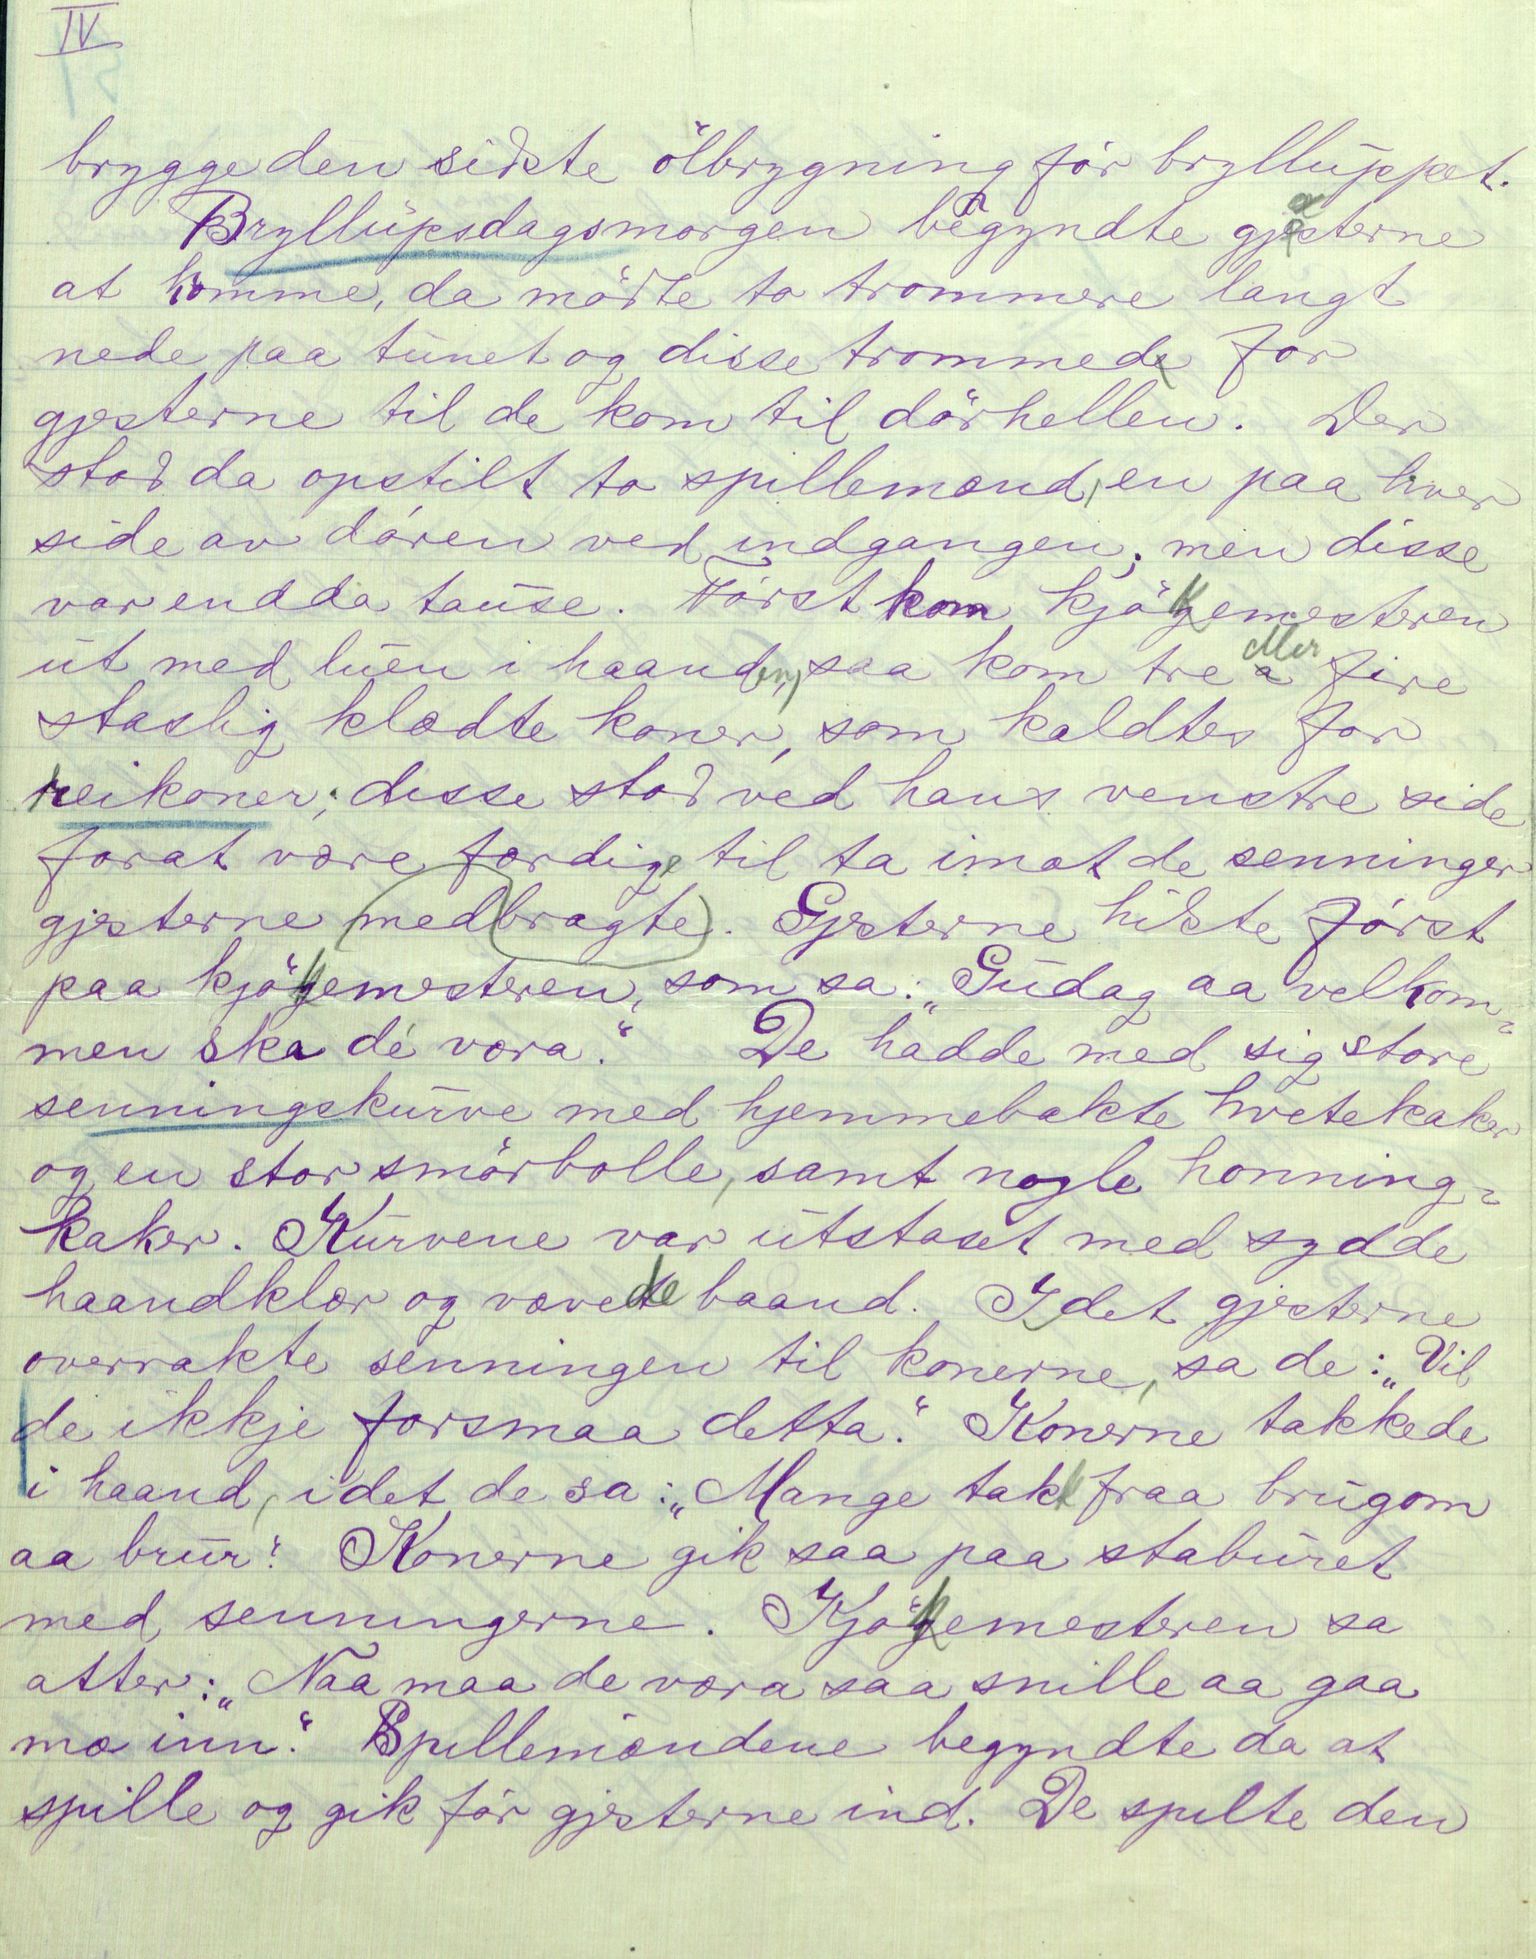 IV
brygge den sidste ölbrygning för brylluppet.
Bryllupsdagsmorgen begyndte gjæsterne
at komme, da mödte to trommere langt
nede paa tunet og disse trommede for
gjesterne til de kom til dörhellen. Der
stod da opstilt to spillemænd, en paa hver
side av dören ved indgangen; men disse
var endda tause. Först kom kjökemesteren
ut med luen i haanden, saa kom tre eller fire
staslig klædte koner, som kaldtes for
reikoner; disse stod ved hans venstre side
forat være færdige til ta imot de senninger
gjesterne medbragte. Gjesterne hilste först
paa kjökemesteren, som sa: „Gudag aa velkom-
men ska dé væra.“ De hadde med sig store
senningskurve med hjemmebakte hvetekaker
og en stor smörbolle, samt nogle honning-
kaker. Kurvene var utstaset med sydde
haandklær og vævede baand. I det gjesterne
overrakte senningen til konerne, sa de: „Vil
de ikkje forsmaa detta.“ Konerne takkede
i haand, idet de sa: „Mange takk fraa brugom
aa brur“. Konerne gik saa paa staburet
med senningerne. Kjökemesteren sa
atter: „Naa maa de væra saa snille aa gaa
mæ inn.“ Spillemændene begyndte da at
spille og gik för gjesterne ind. De spilte den